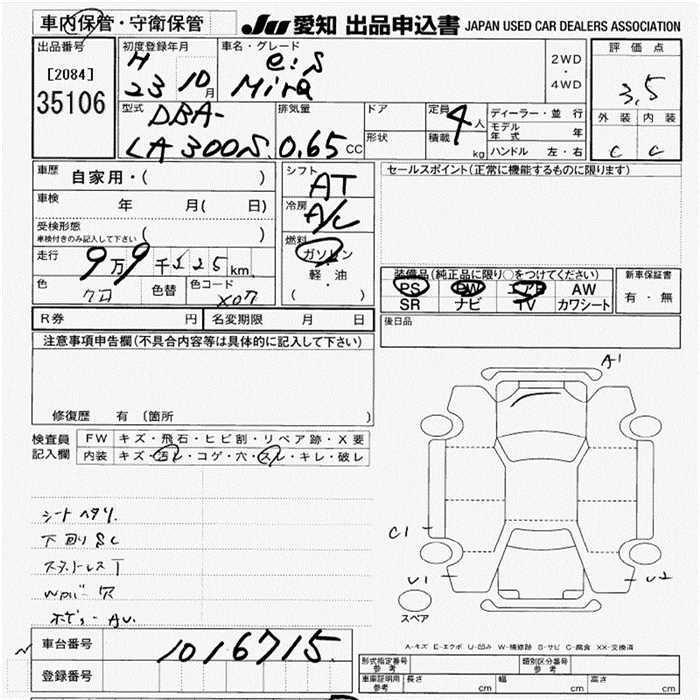 車内保管・守衛保管
JU 愛知 出品申込書 JAPAN USED CAR DEALERS ASSOCIATION
出品番号 初度登録年月 車名・グレード 評価点
[2084]
35106
H 23 10月
e:S
Mira
2WD
・
4WD
3.5
外装 内装
C C
型式 排気量 ドア 定員 4人 ディーラー・並行
DBA-
LA300S 0.65 CC
形状 積載 kg
モデル年式 年
ハンドル 左・右
車歴 自家用・( )
車検 年 月( 日)
受検形態 ( )
車検付きのみ記入して下さい
走行 9万9千225km
色 クロ 色替 色コード X07
シフト AT
冷房 A/C
燃料
ガソリン
・
軽・油
( )
セールスポイント(正常に機能するものに限ります)
装備品(純正品に限り○をつけてください)
PS PW エアB AW
SR ナビ TV カワシート
新車保証書
有・無
R券 円 名変期限 月 日
後日品
注意事項申告欄(不具合内容等は具体的に記入して下さい)
修復歴 有 (箇所 )
検査員
記入欄
FW キズ・飛石・ヒビ割・リペア跡・X要
内装 キズ・汚レ・コゲ・穴・スレ・キレ・破レ
シートヘタリ
下回りSC
A1
C1
U1
U2
スペア
A-キズ E-エクボ U-凹み W-補修跡 S-サビ C-腐食 XX-交換済
車台番号 1016715
登録番号
型式指定番号
参考
類別区分番号
参考
車庫証明用
参考
長さ cm 幅 cm 高さ cm